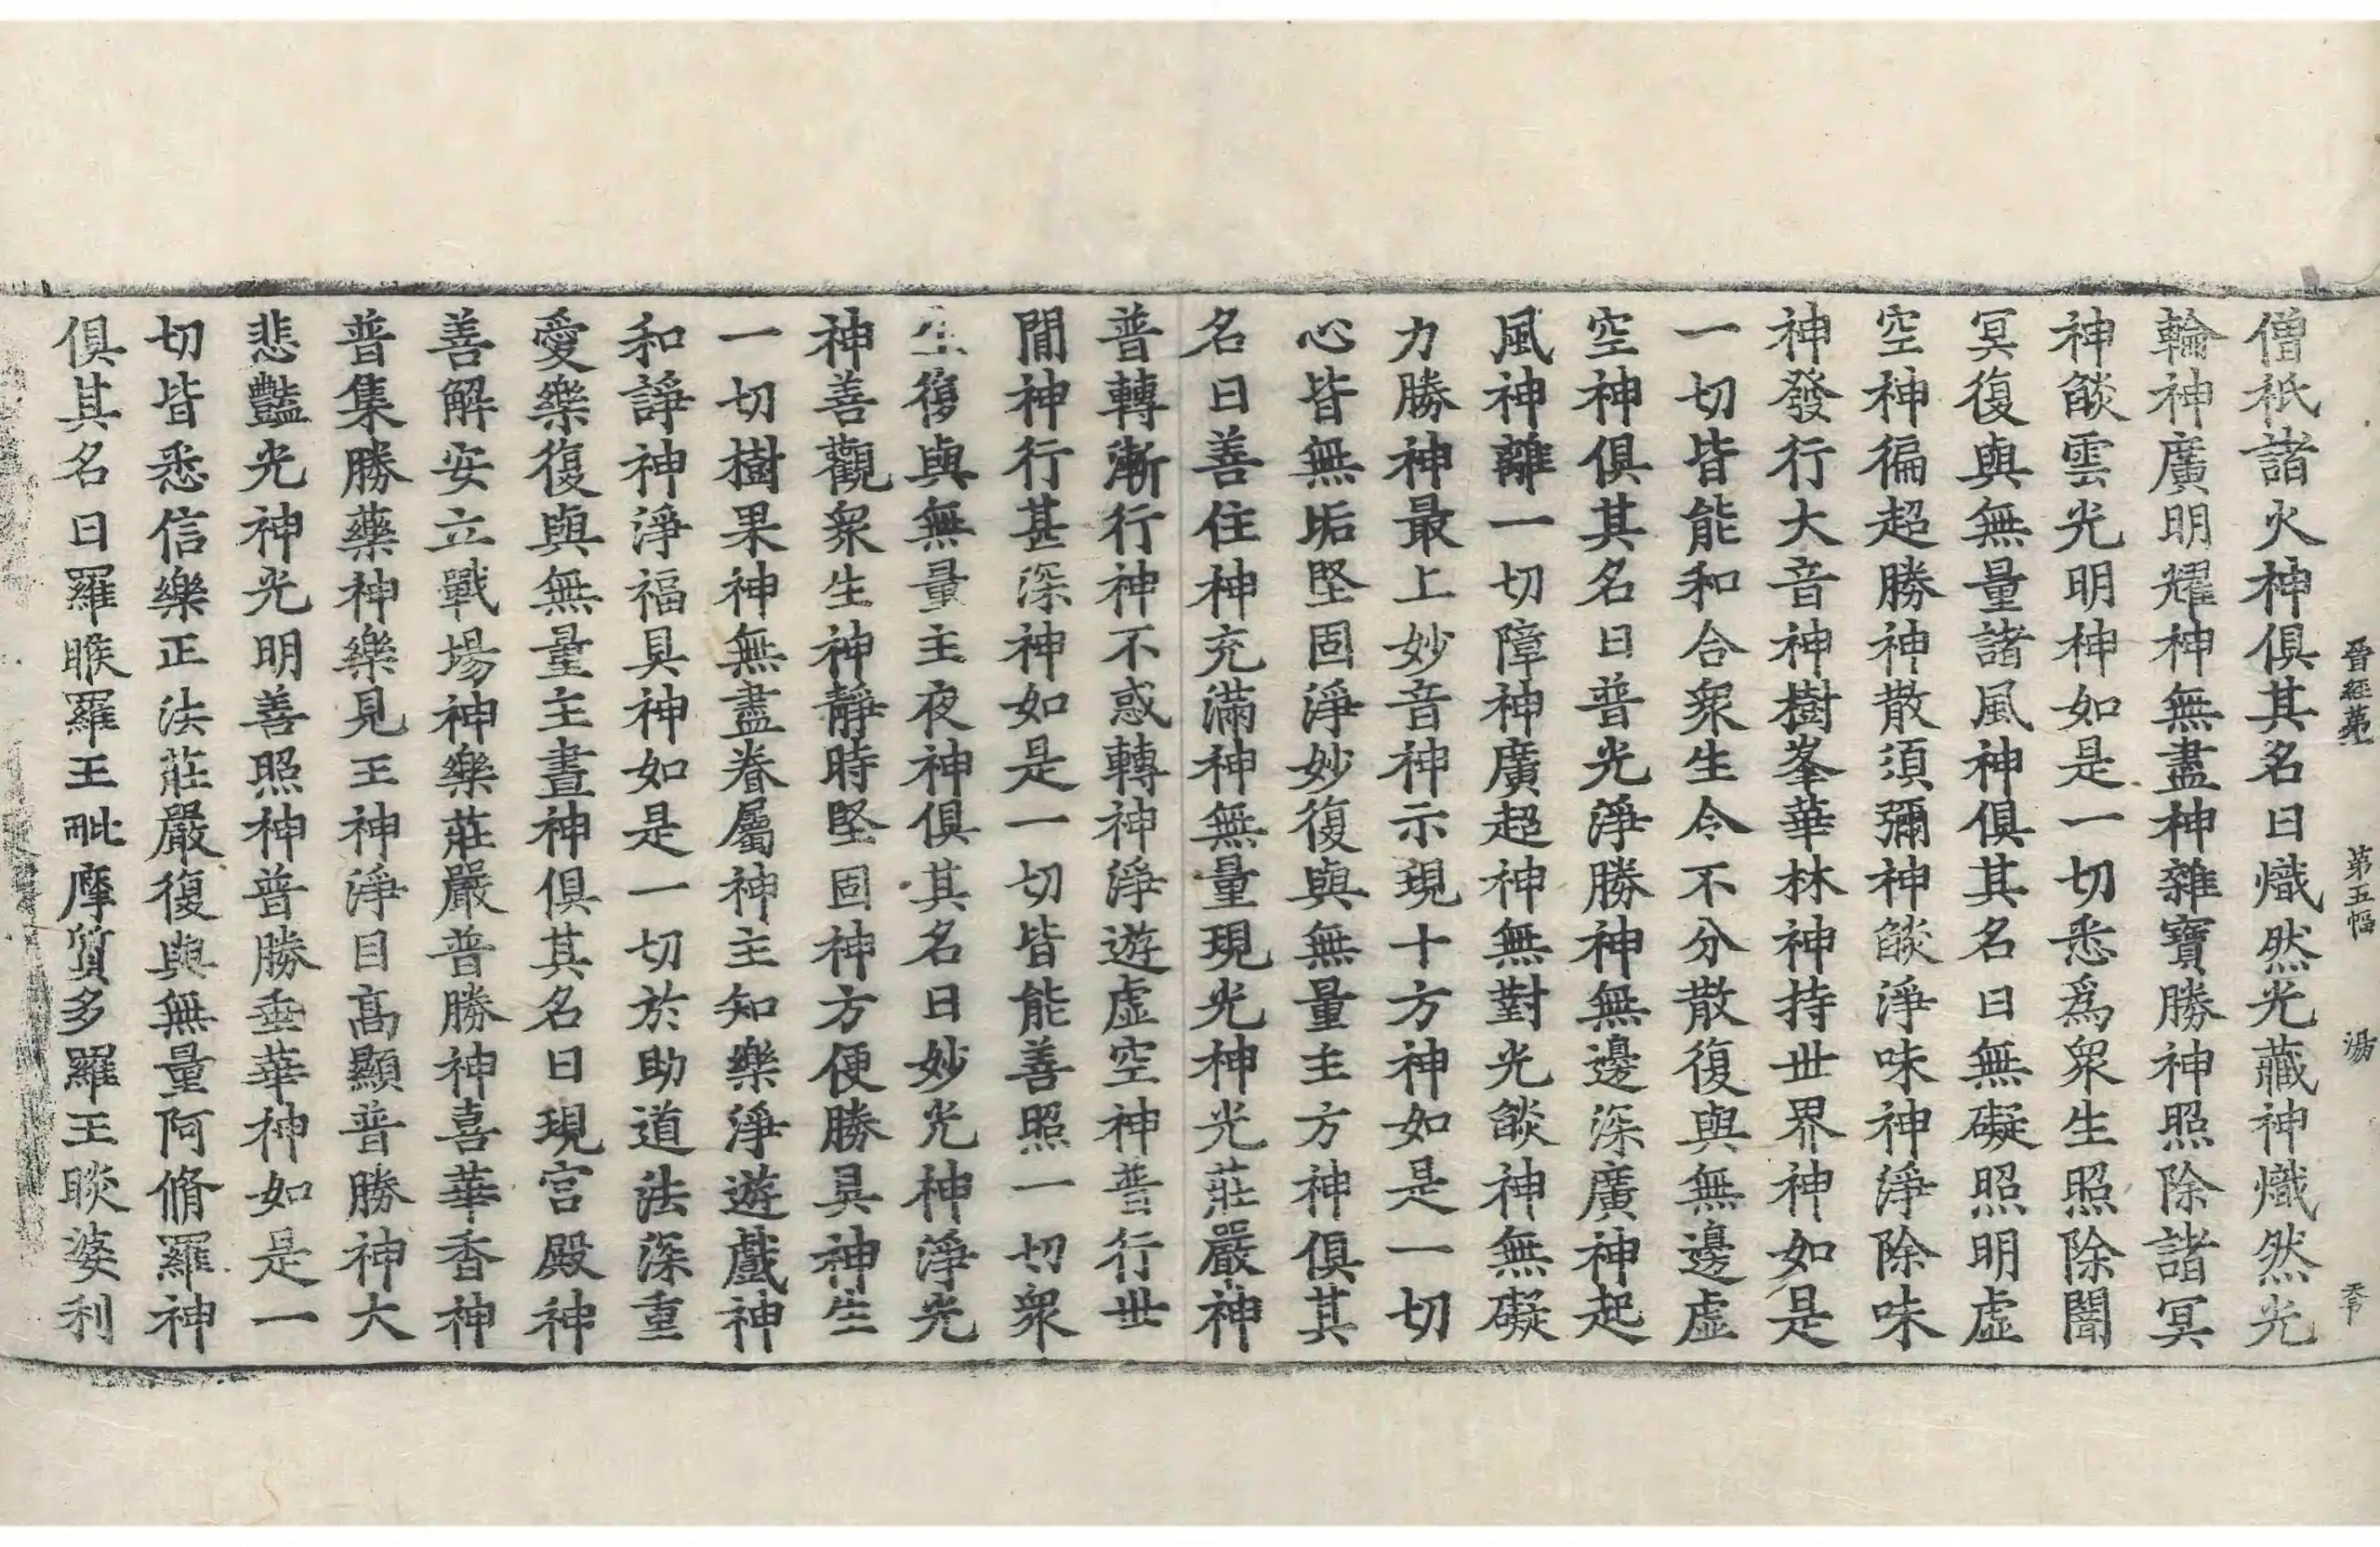 晉經第一 第五幅 湯
僧祇諸火神俱其名曰熾然光藏神熾然光
輪神廣明耀神無盡神雜寶勝神照除諸冥
神燄雲光明神如是一切悉爲衆生照除闇
冥復與無量諸風神俱其名曰無礙照明虛
空神徧超勝神散須彌神燄淨味神淨除味
神發行大音神樹峯華林神持世界神如是
一切皆能和合衆生令不分散復與無邊虛
空神俱其名曰普光淨勝神無邊深廣神起
風神離一切障神廣超神無對光燄神無礙
力勝神最上妙音神示現十方神如是一切
心皆無垢堅固淨妙復與無量主方神俱其
名曰善住神充滿神無量現光神光莊嚴神
普轉漸行神不惑轉神淨遊虛空神普行世
間神行甚深神如是一切皆能善照一切衆
生復與無量主夜神俱其名曰妙光神淨光
神善觀衆生神靜時堅固神方便勝具神生
一切樹果神無盡眷屬神主知樂淨遊戲神
和諍神淨福具神如是一切於助道法深重
愛樂復與無量主晝神俱其名曰現宮殿神
善解安立戰場神樂莊嚴普勝神喜華香神
普集勝藥神樂見王神淨目髙顯普勝神大
悲豔光神光明善照神普勝垂華神如是一
切皆悉信樂正法莊嚴復與無量阿脩羅神
俱其名曰羅睺羅王毗摩質多羅王睒婆利